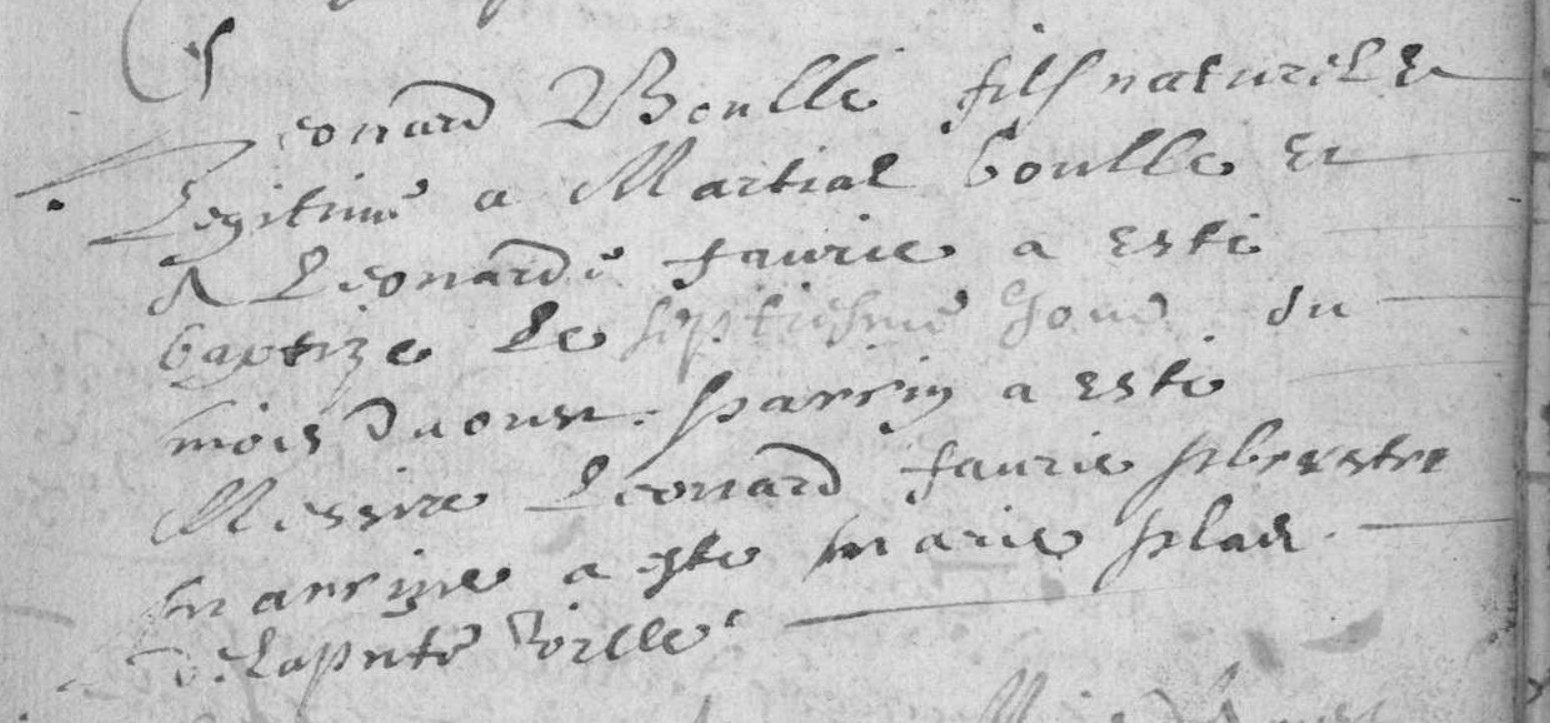 Leonard Boulle fils naturel et
Legitime a Martial boulle et
A Leonarde faurie a este
baptize Le septiesme Jour du
mois daoust. parrin a este
Messire Leonard faurie pbrestre
marrine a este marie plas
de Lapnte ville